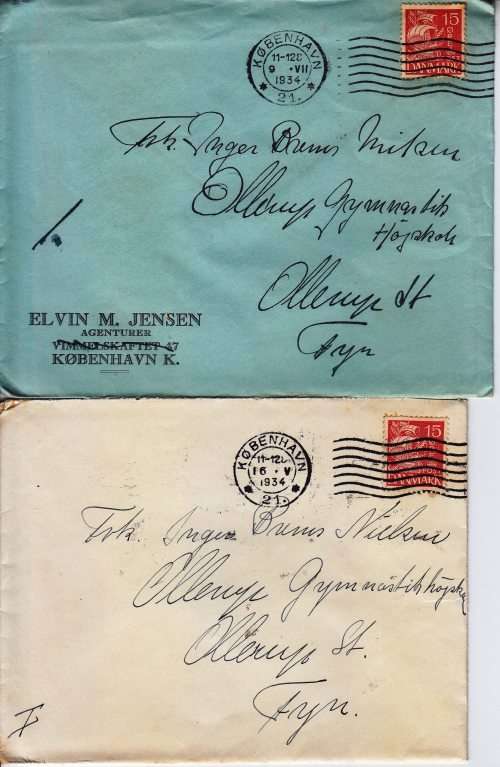 KØBENHAVN
11-12
9 · VII
1934
* 21. *
15
DANMARK
Frk. Inger Brems Nielsen
Ollerup Gymnastik
Højskole
Ollerup St
Fyn
ELVIN M. JENSEN
AGENTURER
VIMMELSKAFTET 47
KØBENHAVN K.
KØBENHAVN
11-12
16 · V
1934
* 21. *
15
DANMARK
Frk. Inger Brems Nielsen
Ollerup Gymnastikhøjskole
Ollerup St.
Fyn.